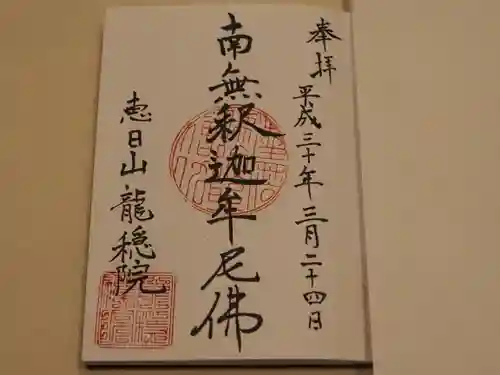 奉拝
平成三十年三月二十四日
南無釈迦牟尼佛
恵日山龍穏院